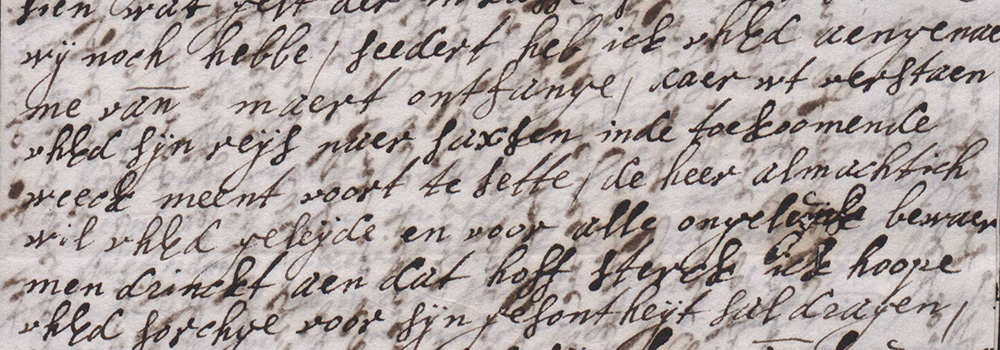 sien wat
wij noch hebbe / seedert heb ick uhEd aengenae
me van maert ontfange / daer wt verstaen
uhEd sijn reijs naer saxsen inde toekoomende
weeck meent voort te sette / de heer almachtich
wil uhEd geleijde en voor alle ongelucke bewaer
men drinckt aen dat hoff sterck ick hoope
uhEd sorchge voor sijn gesontheijt sal dragen /